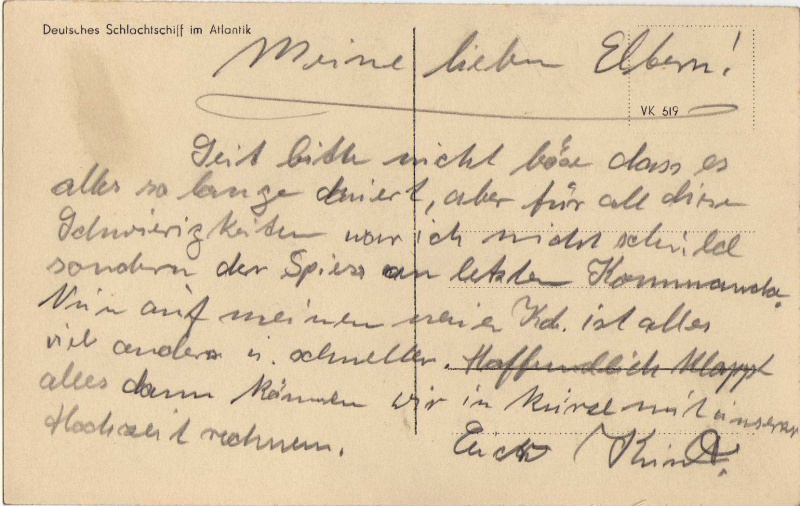 Deutsches Schlachtschiff im Atlantik
Meine lieben Eltern!
VK 519
Seit bitte nicht böse dass es
alles so lange dauert, aber für all diese
Schwierigkeiten war ich nicht schuld
sondern der Spiess am letzten Kommando.
Nun auf meinen neuen Kdo. ist alles
viel anders u. schneller. Hoffendlich klappt
alles dann können wir in Kürze mit unserer
Hochzeit rechnen.